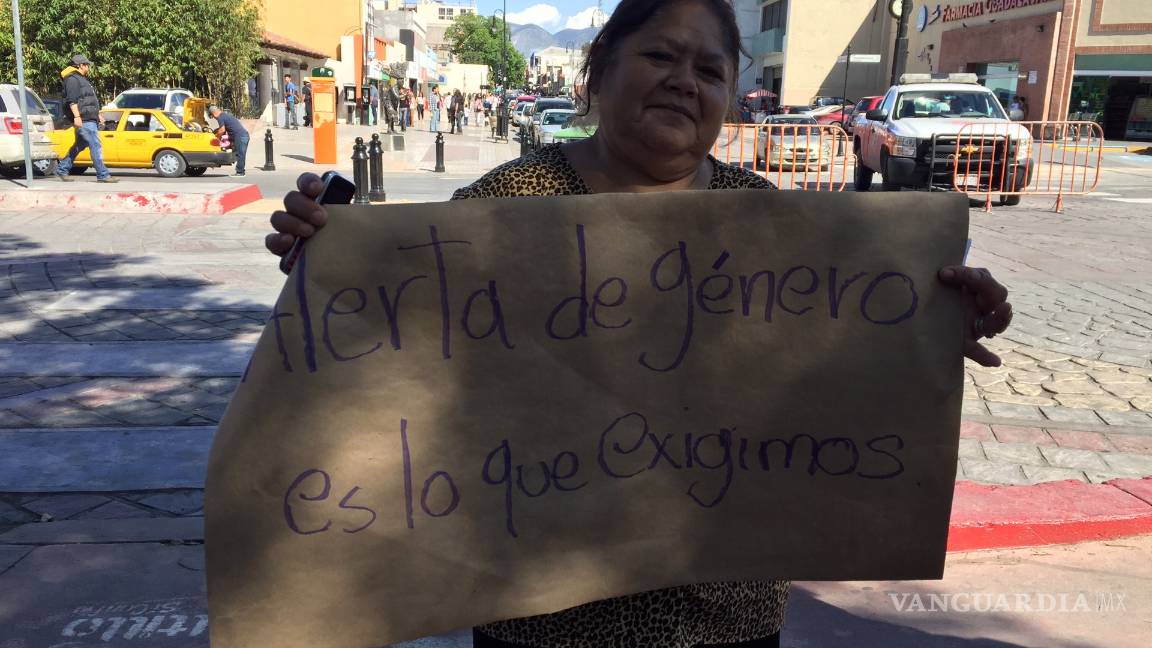 FARMACIA GUADALAJARA
Alerta de género
es lo que exigimos.
VANGUARDIA MX